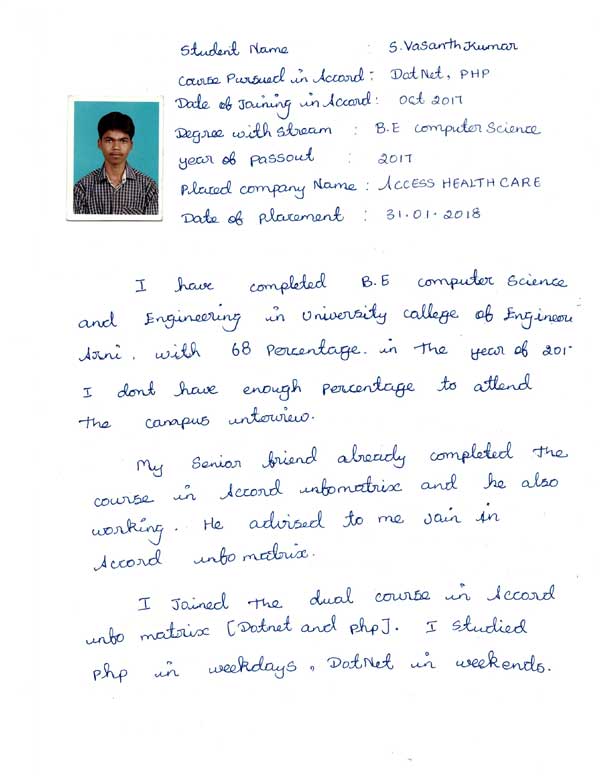 Student Name : S. Vasanth Kumar
Course Pursued in Accord : DotNet, PHP
Date of Joining in Accord : Oct 2017
Degree with Stream : B.E computer Science
year of passout : 2017
Placed company Name : ACCESS HEALTH CARE
Date of placement : 31.01.2018
I have completed B.E computer Science
and Engineering in University college of Engineer
Arni. with 68 Percentage. in the year of 201
I dont have enough percentage to attend
the campus interview.
My Senior friend already completed the
course in Accord infomatrix and he also
working. He advised to me Join in
Accord info matrix.
I Joined the dual course in Accord
info matrix [Dotnet and php]. I studied
php in weekdays, DotNet in weekends.